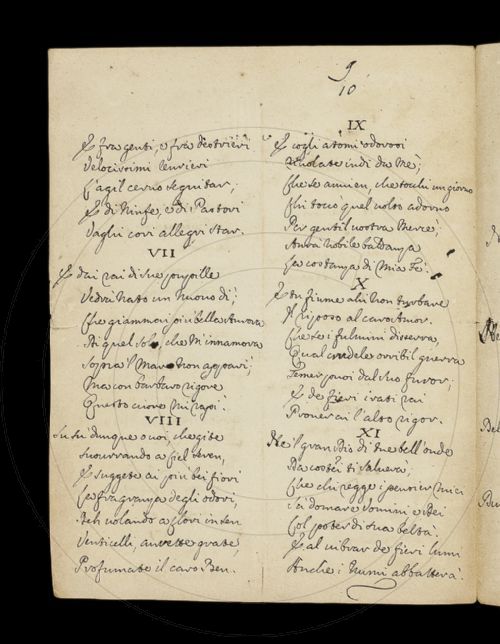 9
10
E fra genti, e fra destrieri
Velocissimi leurieri
L'agil ceruo seguitar,
E di Ninfe, e di Pastori
Vaghi cori allegri star.
VII
E dai rai di sue pupille
Vedrà nato un nuouo dì,
Che giammai più bella Aurora
Di quel Sol, che m'innamora
Sopra 'l Mar non apparì,
Ma con barbaro rigore
Questo cuore mi rapì.
VIII
Su su dunque o uoi, che gite
Susurrando a Ciel seren,
E suggete ai più bei fiori
La fragranza degli odori,
Deh uolando a Clori in sen
Venticelli, aurette grate
Profumate il caro Ben.
IX
E cogli atomi odorosi
Riuolate indi da me,
Che se auuien, che tochi un giorno
Chi toccò quel uolto adorno
Per gentil uostra mercè,
Aurà nobile baldanza
La costanza di mia Fè.
X
E tu fiume ah non turbare
Il riposo al caro Amor.
Che se i fulmini disserra,
Qual crudele orribil guerra
Temer puoi dal suo furor;
E de fieri irati rai
Prouerai l'alto rigor.
XI
Ne il gran Dio di tue bell'onde
Da costei ti saluerà,
Che chi regge i pensier miei
Può domare Uomini e Dei
Col poter di sua beltà.
E al uibrar de fieri lumi
Anche i Numi abbatterà.